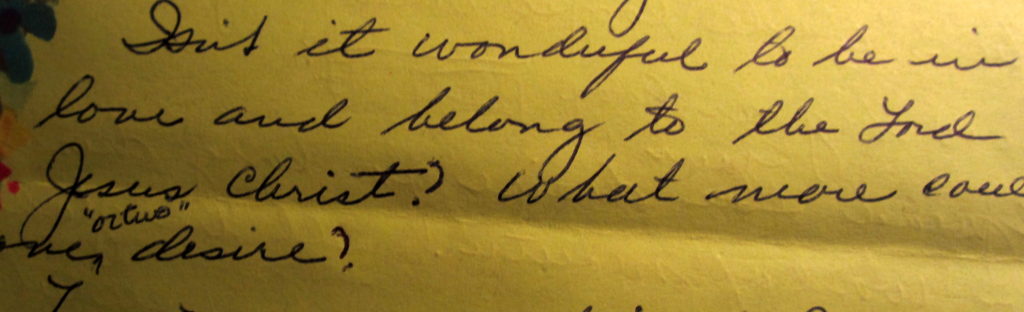 Isn't it wonderful to be in
love and belong to the Lord
Jesus Christ? What more
"or two"
one, desire?